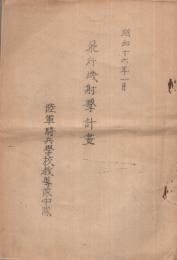 昭和十六年一月
飛行機射撃計畫
陸軍騎兵學校教導隊中隊